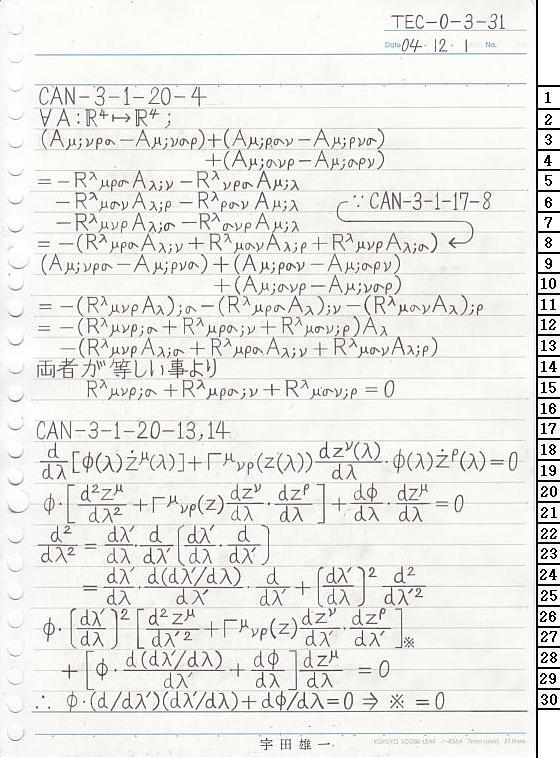 TEC-0-3-31
Date 04・12・1 No.
CAN-3-1-20-4
∀A:ℝ⁴↦ℝ⁴;
(Aμ;νρσ−Aμ;νσρ)+(Aμ;ρσν−Aμ;ρνσ)
+(Aμ;σνρ−Aμ;σρν)
=−R^λ_μρσ A_λ;ν−R^λ_νρσ A_μ;λ
−R^λ_μσν A_λ;ρ−R^λ_ρσν A_μ;λ ∵CAN-3-1-17-8
−R^λ_μνρ A_λ;σ−R^λ_σνρ A_μ;λ
=−(R^λ_μρσ A_λ;ν+R^λ_μσν A_λ;ρ+R^λ_μνρ A_λ;σ) ↵
(Aμ;νρσ−Aμ;ρνσ)+(Aμ;ρσν−Aμ;σρν)
+(Aμ;σνρ−Aμ;νσρ)
=−(R^λ_μνρ A_λ);σ−(R^λ_μρσ A_λ);ν−(R^λ_μσν A_λ);ρ
=−(R^λ_μνρ;σ+R^λ_μρσ;ν+R^λ_μσν;ρ)A_λ
−(R^λ_μνρ A_λ;σ+R^λ_μρσ A_λ;ν+R^λ_μσν A_λ;ρ)
両者が等しい事より
R^λ_μνρ;σ+R^λ_μρσ;ν+R^λ_μσν;ρ=0
CAN-3-1-20-13,14
d/dλ[φ(λ)ż^μ(λ)]+Γ^μ_νρ(z(λ))dz^ν(λ)/dλ・φ(λ)ż^ρ(λ)=0
φ・[d²z^μ/dλ²+Γ^μ_νρ(z)dz^ν/dλ・dz^ρ/dλ]+dφ/dλ・dz^μ/dλ=0
d²/dλ²=dλ′/dλ・d/dλ′(dλ′/dλ・d/dλ′)
=dλ′/dλ・d(dλ′/dλ)/dλ′・d/dλ′+(dλ′/dλ)²d²/dλ′²
φ・(dλ′/dλ)²[d²z^μ/dλ′²+Γ^μ_νρ(z)dz^ν/dλ′・dz^ρ/dλ′]※
+[φ・d(dλ′/dλ)/dλ′+dφ/dλ]dz^μ/dλ=0
∴ φ・(d/dλ′)(dλ′/dλ)+dφ/dλ=0⇒※=0
宇田雄一
KOKUYO LOOSE-LEAF ノ-836A 7mm ruled 31 lines
1
2
3
4
5
6
7
8
9
10
11
12
13
14
15
16
17
18
19
20
21
22
23
24
25
26
27
28
29
30